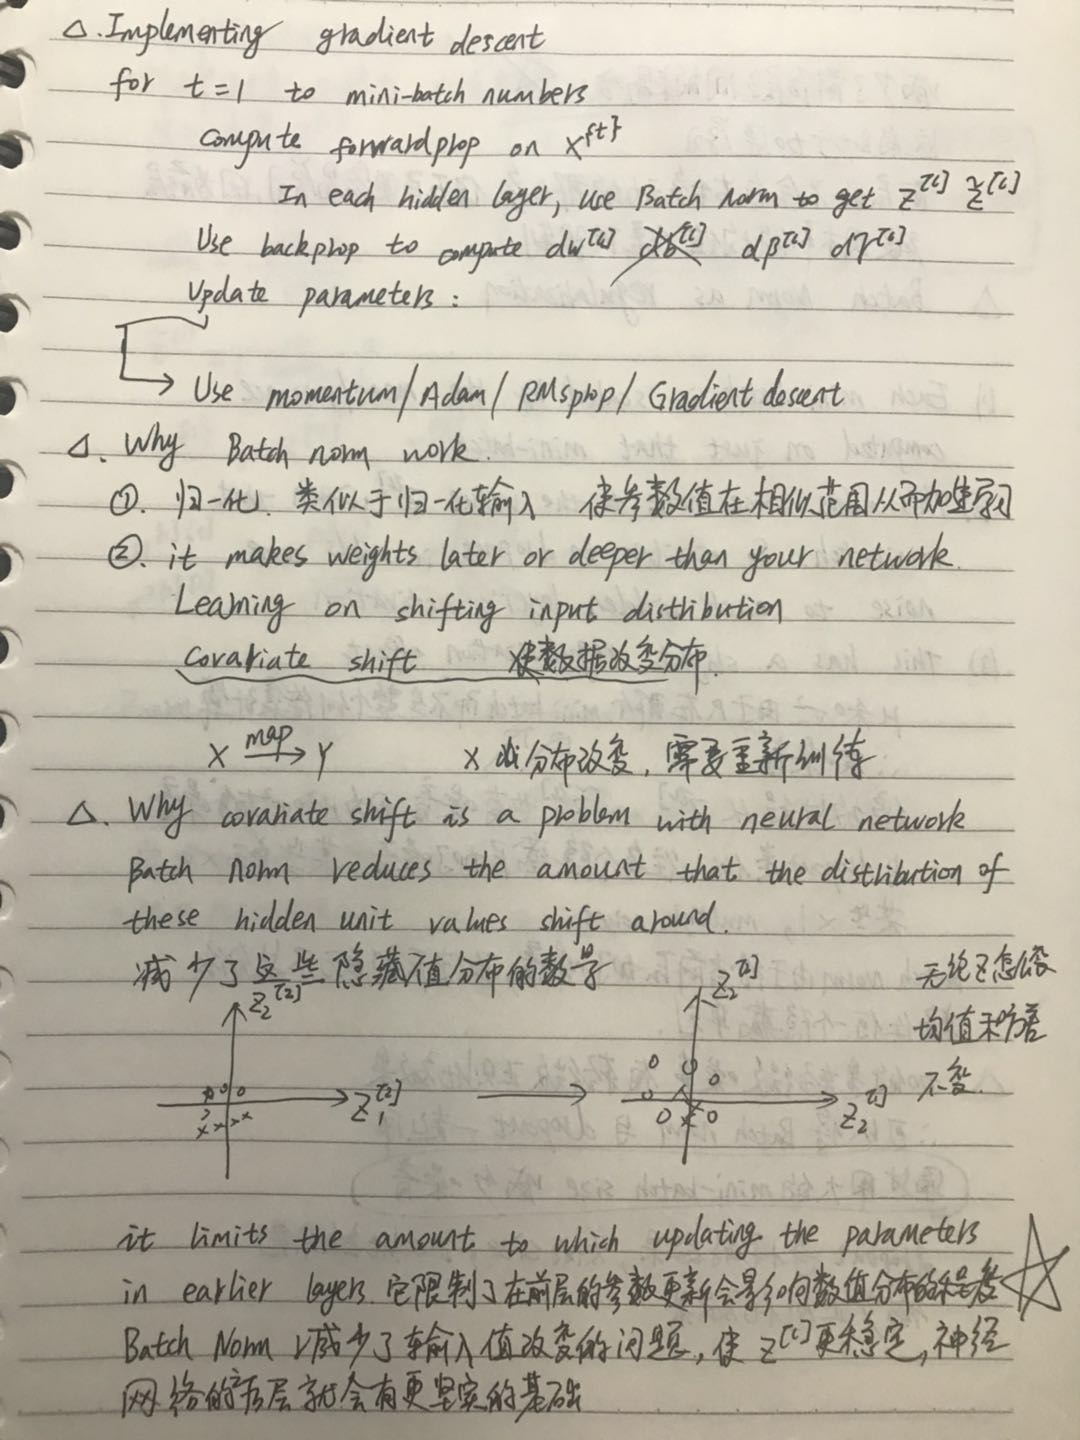 △. Implementing gradient descent
for t=1 to mini-batch numbers
compute forwardprop on X^{t}
In each hidden layer, use Batch norm to get Z^[l] Z̃^[l]
Use backprop to compute dw^[l] db^[l] dβ^[l] dγ^[l]
Update parameters:
Use momentum/Adam/RMsprop/Gradient descent
△. Why Batch norm work.
①. 归一化. 类似于归一化输入 使参数值在相似范围从而加速学习
②. it makes weights later or deeper than your network.
Learning on shifting input distribution
covariate shift 使数据改变分布.
X map→ Y X 分布改变, 需要重新训练
△. Why covariate shift is a problem with neural network
Batch Norm reduces the amount that the distribution of
these hidden unit values shift around.
减少了这些隐藏值分布的数量
Z₂^[2] Z₂^[2] 无论Z怎么变
均值和方差
不变.
Z₁^[2] Z₂^[2]
it limits the amount to which updating the parameters
in earlier layers. 它限制了在前层的参数更新会影响数值分布的程度
Batch Norm 减少了输入值改变的问题, 使 Z^[l]更稳定, 神经
网络的后层就会有更坚实的基础